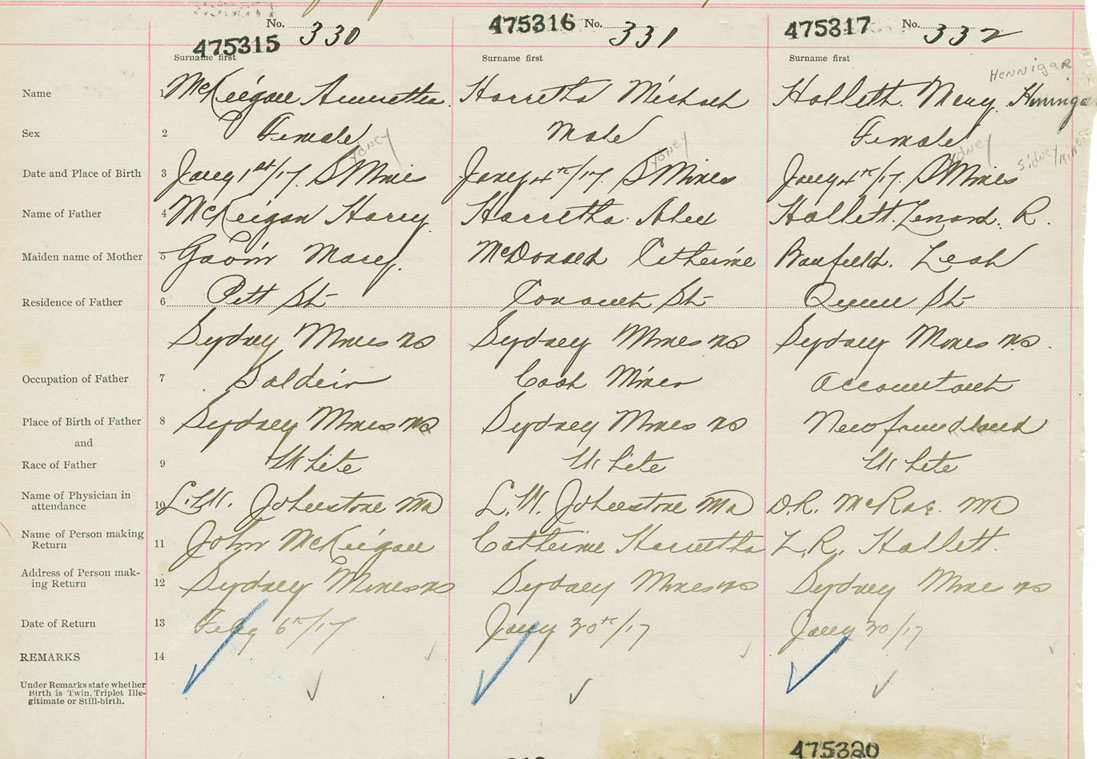 No. 330
475315
Surname first
475316 No. 331
Surname first
475317 No. 332
Surname first
Hennigar
Name 1 McKeigan Harretha Michael Hallett Mary
Sex 2 Female Male Female
ydney ydney ydney Sidney Mines
Date and Place of Birth 3 Jany 1st/17. S Mines Jany 4th/17. S Mines Jany 4th/17. S Mines
Name of Father 4 McKeigan Harry Harretha Alex Hallett Lenard. R.
Maiden name of Mother 5 Mary. McDonald Catherine Leah
Residence of Father 6 Pitt St Queen St
Sydney Mines NS Sydney Mines NS Sydney Mines N.S.
Occupation of Father 7 Soldeir Coal Miner Accountant
Place of Birth of Father 8 Sydney Mines NS Sydney Mines NS Newfoundland
and
Race of Father 9 White White White
Name of Physician in
attendance 10 L.W. Johnstone MD L.W. Johnstone MD D.R. McRae. MD
Name of Person making
Return 11 John McKeigan Catherine Harretha L.R. Hallett.
Address of Person mak-
ing Return 12 Sydney Mines NS Sydney Mines NS Sydney Mine NS
Date of Return 13 Feby 6th/17 Jany 30th/17 Jany 30/17
REMARKS 14
Under Remarks state whether
Birth is Twin, Triplet Ille-
gitimate or Still-birth.
475320